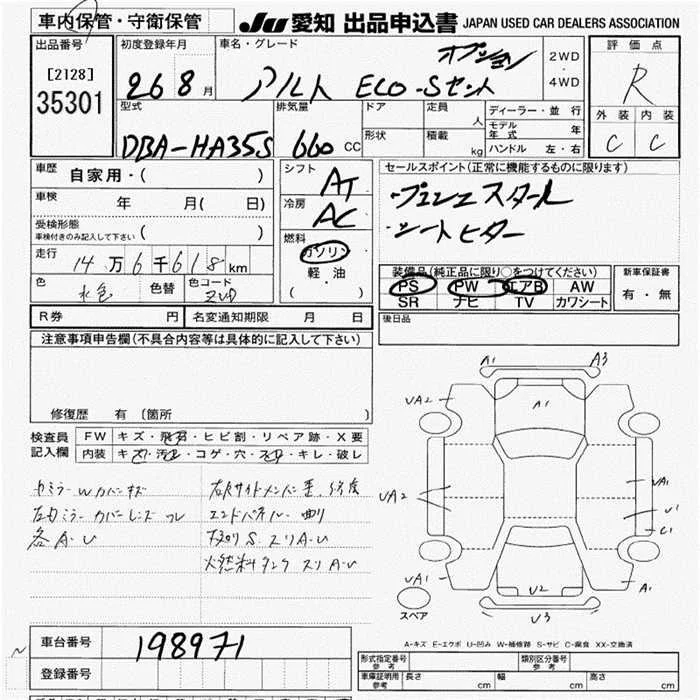 車内保管・守衛保管
JU 愛知 出品申込書 JAPAN USED CAR DEALERS ASSOCIATION
出品番号
[2128]
35301
初度登録年月
26 8 月
車名・グレード
アルト ECO-S
2WD
・
4WD
評価点
R
外装 内装
C C
型式
DBA-HA35S
排気量
660 CC
ドア
形状
定員
人
積載
kg
ディーラー・並行
モデル年式 年
ハンドル 左・右
車歴
自家用・( )
車検
年 月( 日)
受検形態
車検付きのみ記入して下さい ( )
走行
14 万 6 千 618 km
色
水色
色替
色コード
シフト
AT
冷房
AC
燃料
ガソリン
軽・油
( )
セールスポイント(正常に機能するものに限ります)
・プッシュスタート
・シートヒーター
装備品(純正品に限り○をつけてください)
PS PW エアB AW
SR ナビ TV カワシート
新車保証書
有・無
R券 円
名変通知期限 月 日
後日品
注意事項申告欄(不具合内容等は具体的に記入して下さい)
修復歴 有 (箇所 )
検査員
記入欄
FW キズ・飛石・ヒビ割・リペア跡・X要
内装 キズ・汚れ・コゲ・穴・スレ・キレ・破レ
右ミラーWカバーキズ
左右ミラーカバーレンズスレ
各A・U
エンドパネル曲り
燃料タンクスリA・U
A1 A3
UA2
A1
UA2
UA1
U1
C1
UA1
A1
U2
U3
スペア
A-キズ E-エクボ U-凹み W-補修跡 S-サビ C-腐食 XX-交換済
車台番号
198971
登録番号
形式指定番号
参考
類別区分番号
参考
車庫証明用
参考
長さ cm
幅 cm
高さ cm